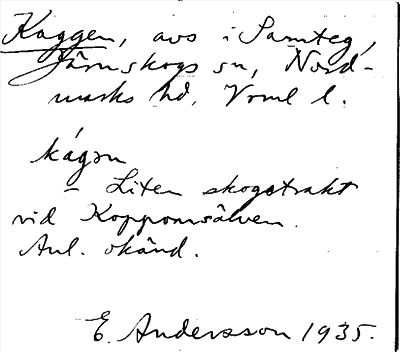 Kaggen, avs i Samteg,
Järnskogs sn, Nord-
marks hd, Vrml l.
kággn
- Liten skogstrakt
vid Koppomsälven.
Anl. okänd.
E. Andersson 1935.